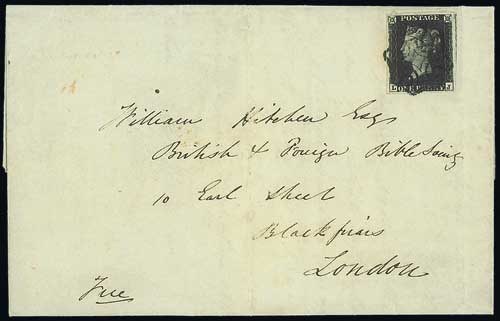 POSTAGE
ONE PENNY
L
William Hitchen Esqr
British & Foreign Bible Society
10 Earl Street
Blackfriars
London
Free